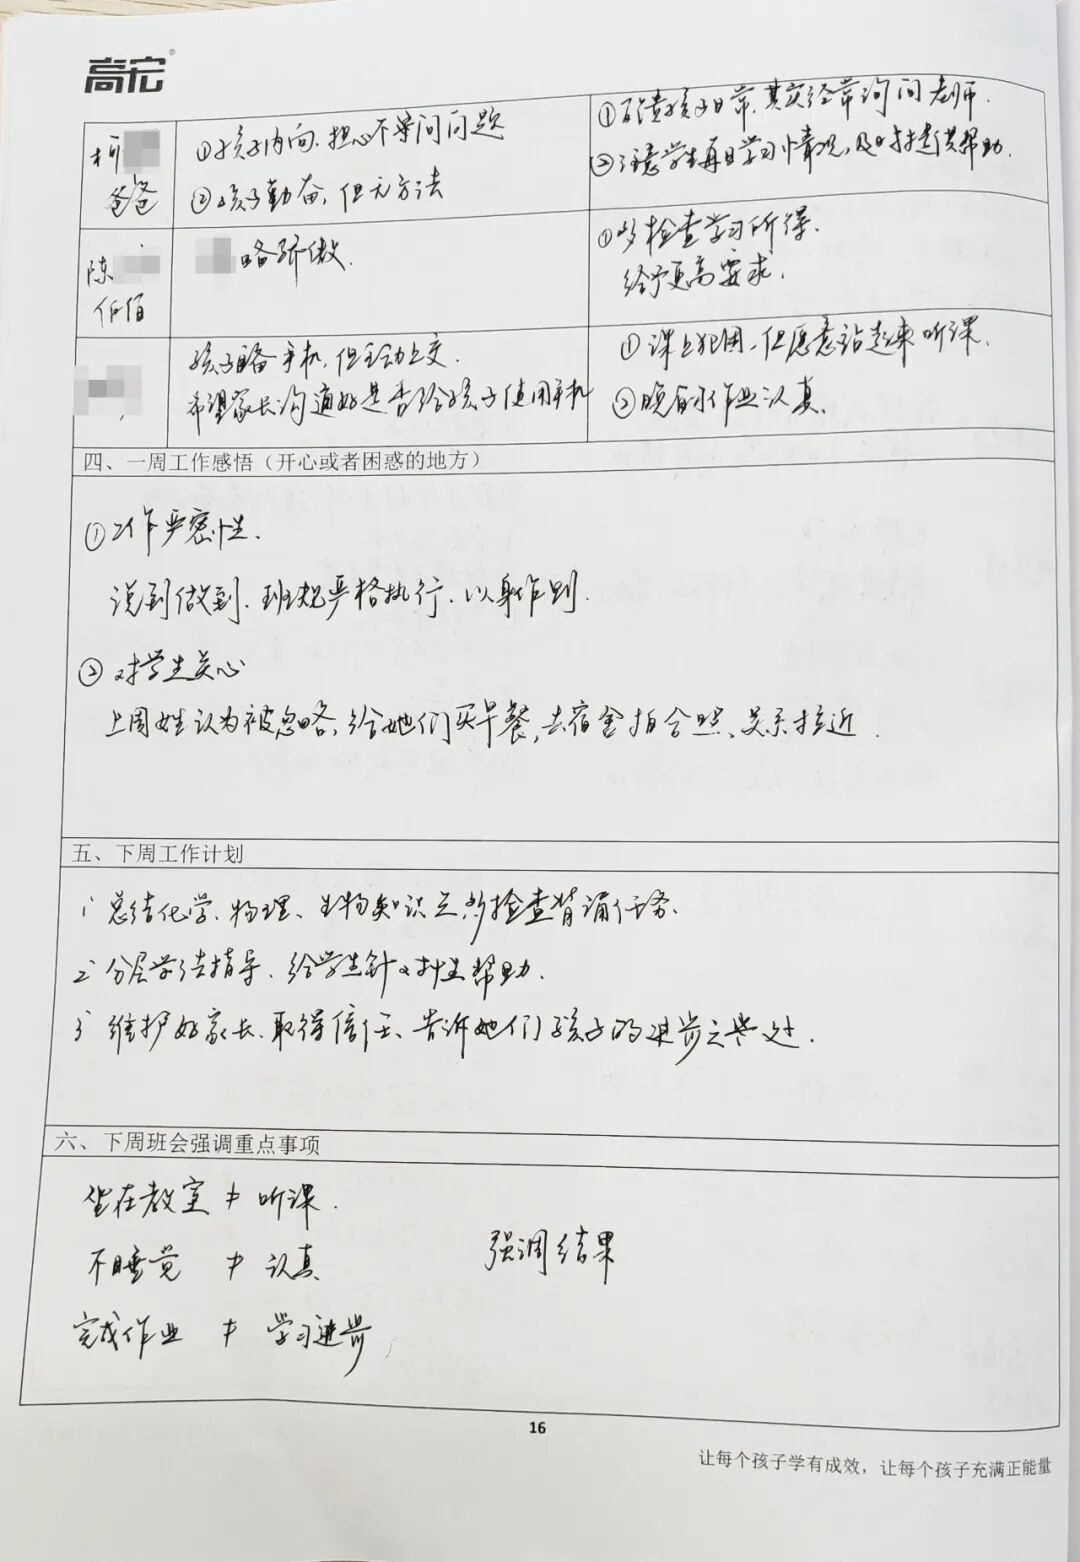 高宏®
爸爸
①孩子内向、担心不敢问问题
②孩子勤奋,但无方法
①反馈孩子日常,其实经常询问老师.
②注意学生每日学习情况,及时提供帮助.
陈
伯伯
略骄傲.
①多检查学习所得.
给予更高要求.
孩子自备手机,但主动上交.
希望家长沟通好是否给孩子使用手机
①课上犯困,但愿意站起来听课.
②晚自习作业认真.
四、一周工作感悟(开心或者困惑的地方)
①工作严密性.
说到做到.班规严格执行.以身作则.
②对学生关心
上周女生认为被忽略,给她们买早餐,去宿舍拍合照、关系拉近.
五、下周工作计划
1、总结化学、物理、生物知识点,多检查背诵任务.
2、分层学法指导、给学生针对性帮助.
3、维护好家长、取得信任、告诉她们孩子的进步之处.
六、下周班会强调重点事项
坐在教室≠听课.
不睡觉≠认真
强调结果
完成作业≠学习进步
16
让每个孩子学有成效,让每个孩子充满正能量